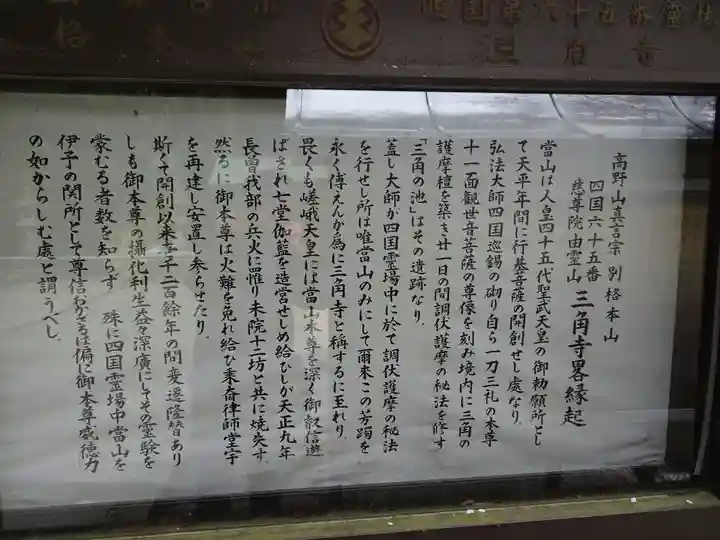 国第六十五番霊場
高野山真言宗 別格本山
四国六十五番
慈尊院由霊山 三角寺畧縁起
當山は人皇四十五代聖武天皇の御勅願所とし
て天平年間に行基菩薩の開創せし處なり.
弘法大師四国巡錫の砌り自ら一刀三礼の本尊
十一面観世音菩薩の尊像を刻み境内に三角の
護摩檀を築き廿一日の間調伏護摩の秘法を修す
「三角の池」はその遺跡なり.
蓋し大師が四国霊場中に於て調伏護摩の秘法
を行ぜし所は唯當山のみにして爾来この芳躅を
永く傳えんが為に三角寺と稱するに至れり.
畏くも嵯峨天皇には當山本尊を深く御敬信遊
ばされ七堂伽藍を造営せしめ給ひしが天正九年
長曽我部の兵火に罹り末院十二坊と共に焼失す.
然るに御本尊は火難を免れ給ひ乗奇律師堂宇
を再建し安置し参らせたり.
斯くて開創以来壱千二百餘年の間変遷隆替あり
しも御本尊の攝化利生益々深廣にしてその霊験を
蒙むる者数を知らず 殊に四国霊場中當山を
伊予の関所として尊信わざるは偏に御本尊威徳力
の如からしむ處と謂うべし.